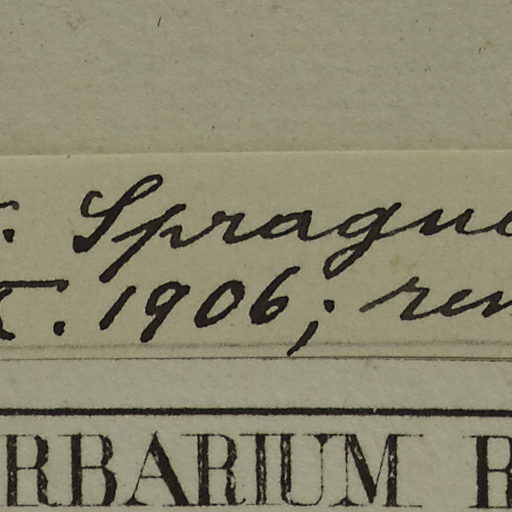 . Sprague
. 1906; ren
RBARIUM